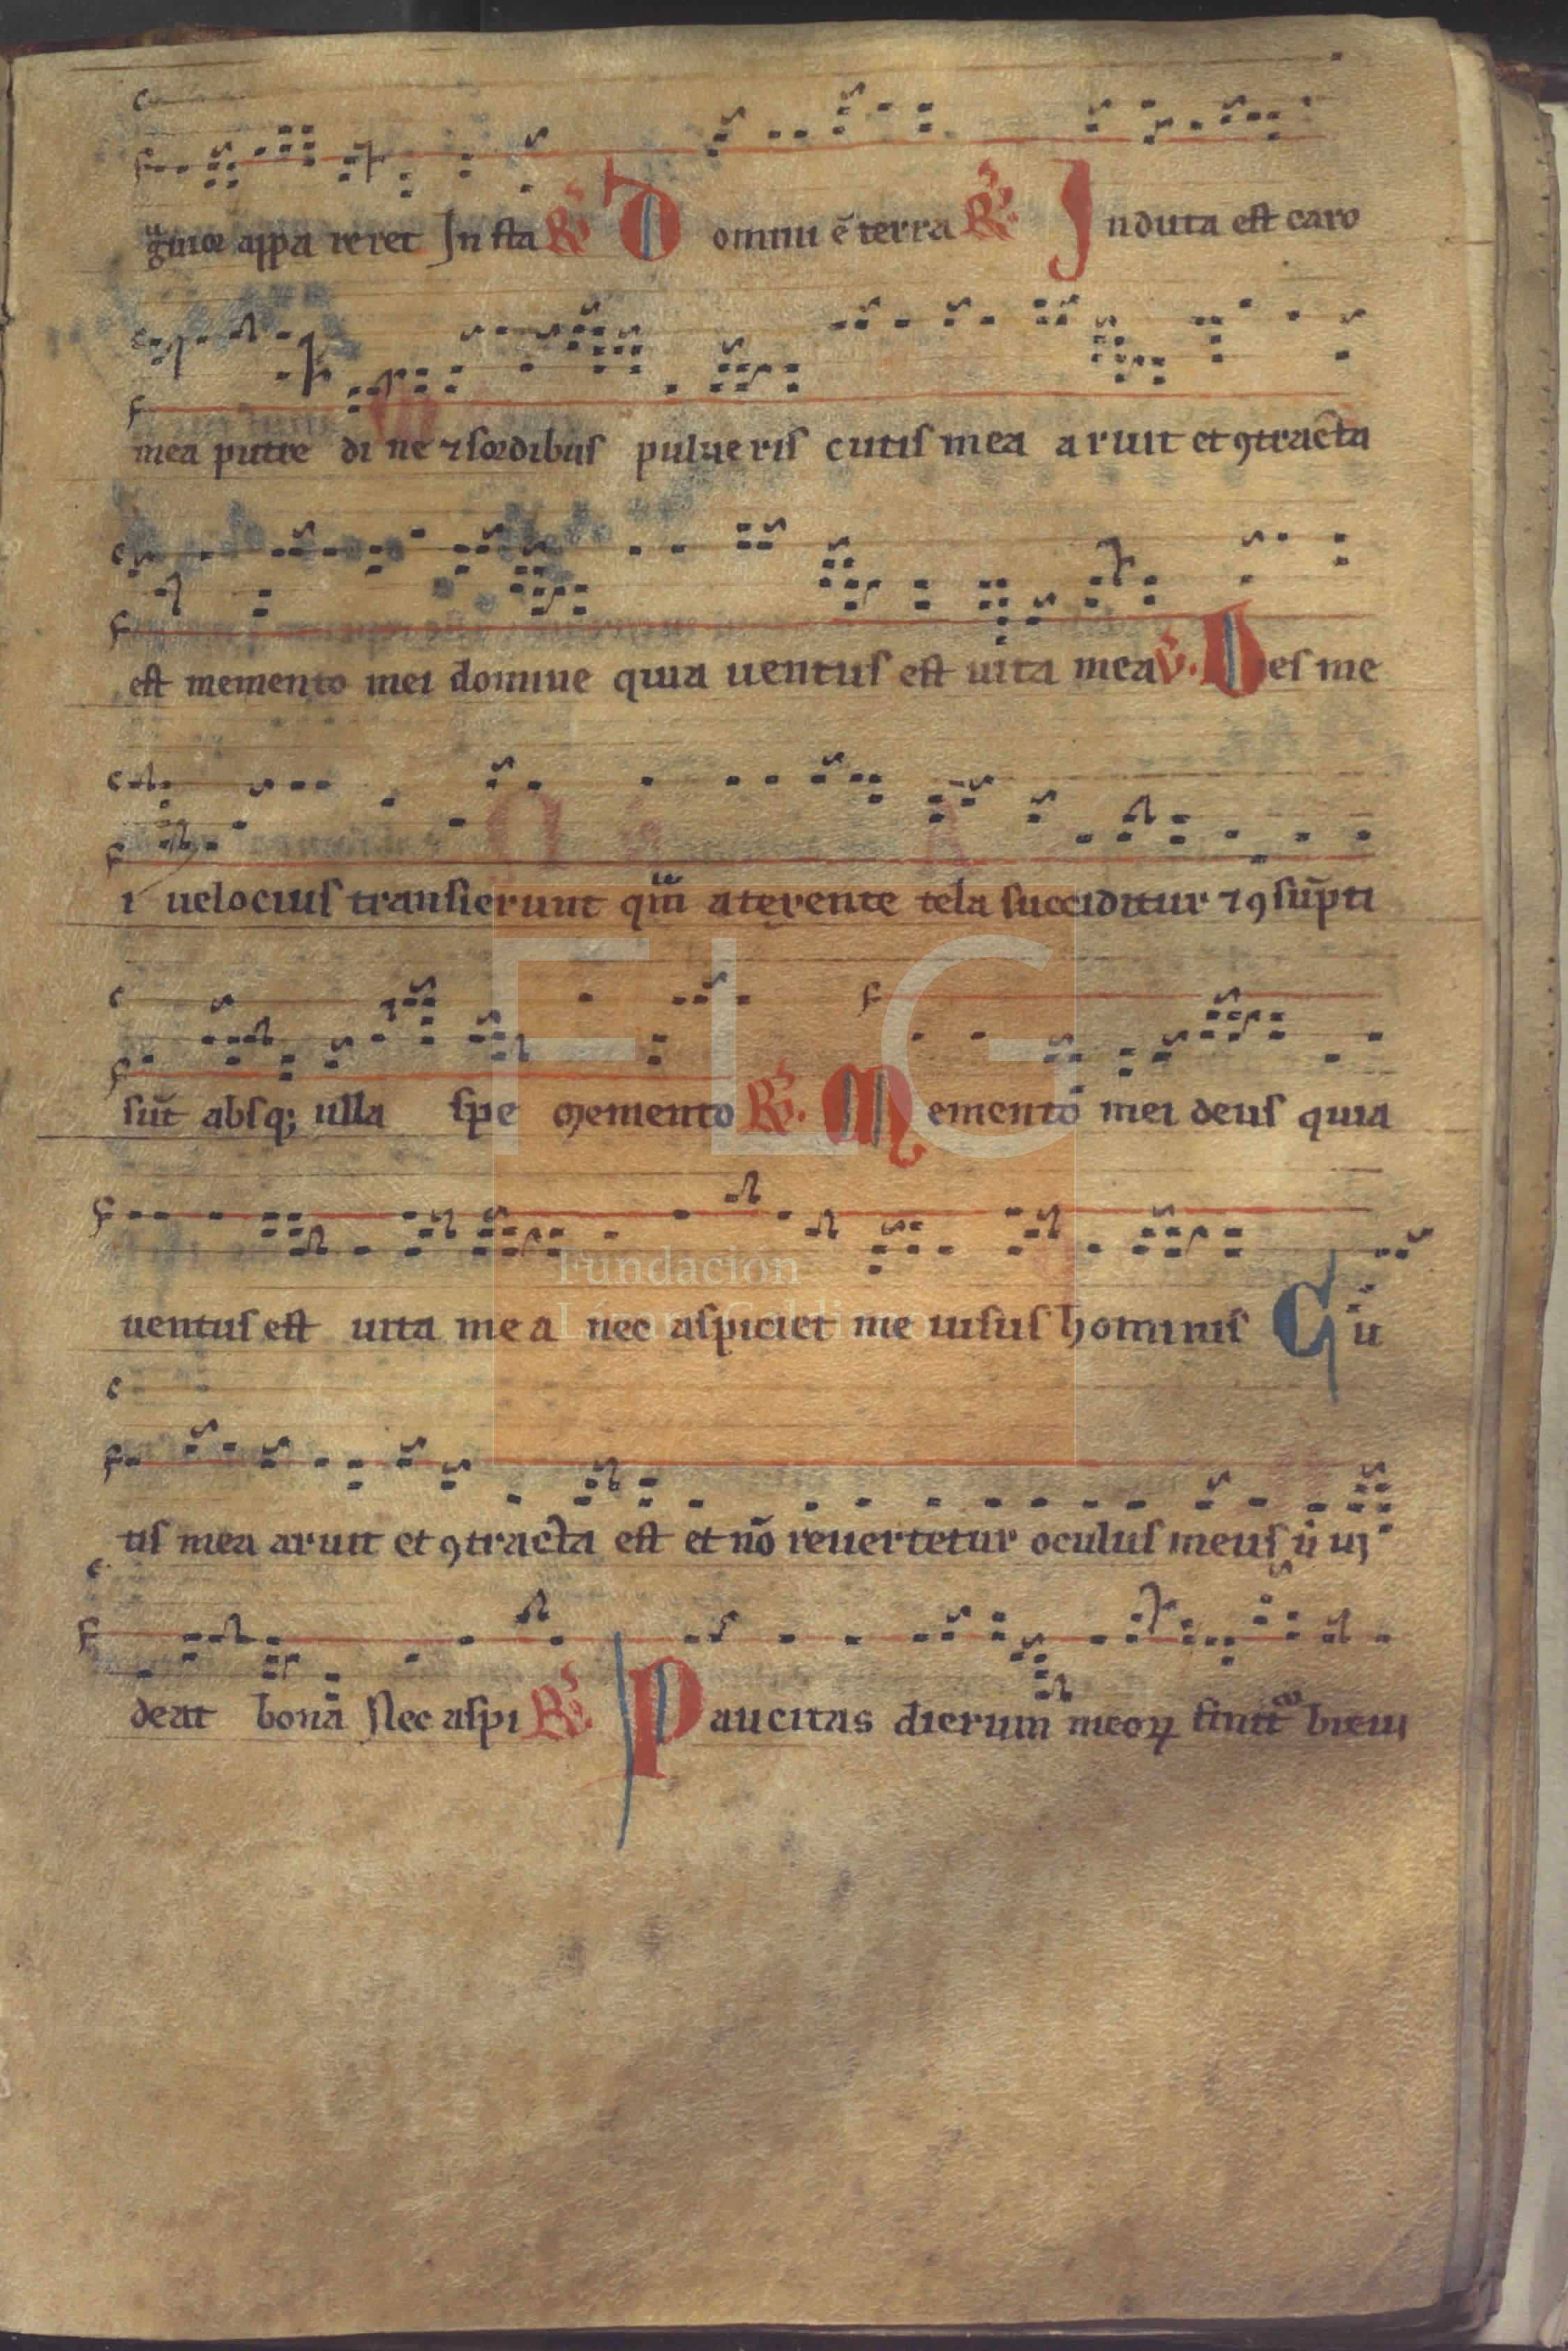 gnior appa reret In sta R̃ Domini ē terra R̃ Induta est caro
mea putre di ne ⁊ sordibus pulueris cutis mea aruit et ꝯtracta
est memento mei domine quia uentus est uita mea ℣. Dies me
i uelocius transierunt qm̃ a texente tela succiditur ⁊ ꝯsũpti
sũt absq; ulla spe Memento R̃. Memento mei deus quia
uentus est uita mea nec aspiciet me uisus hominis Cũ
tis mea aruit et ꝯtracta est et nõ reuertetur oculus meus ũ ui
deat bona Nec aspi R̃. Paucitas dierum meoꝝ finit breui
FLG
Fundación
Lázaro Galdiano